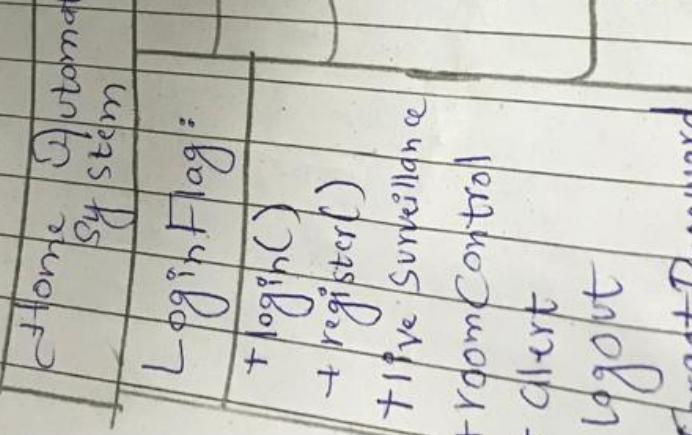 Home Automa
System
LoginFlag:
+ login()
+ register()
+ live Surveillance
+ roomControl
- alert
logout